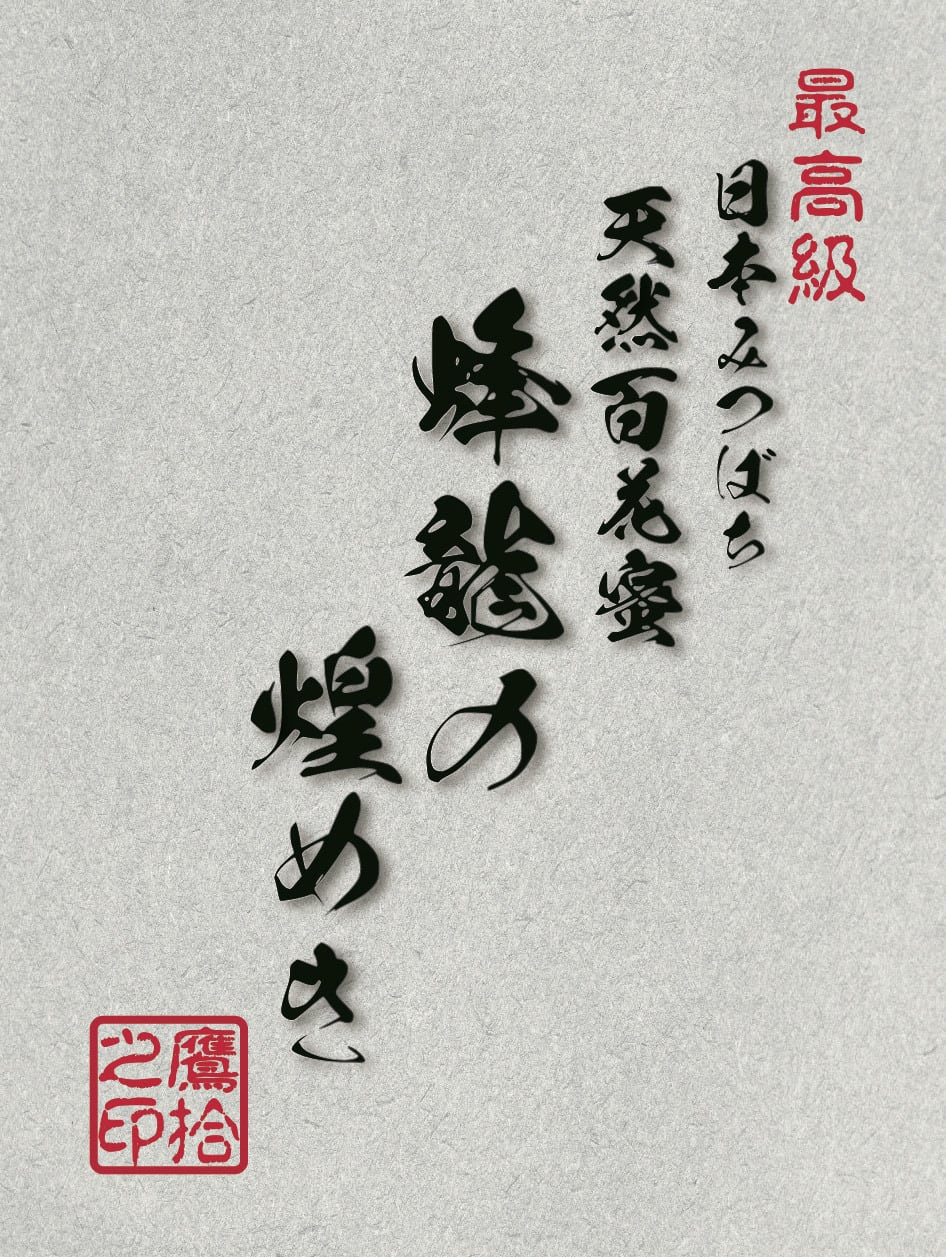 最高級
日本みつばち
天然百花蜜
蜂龍の
煌めき
鷹拾
之印